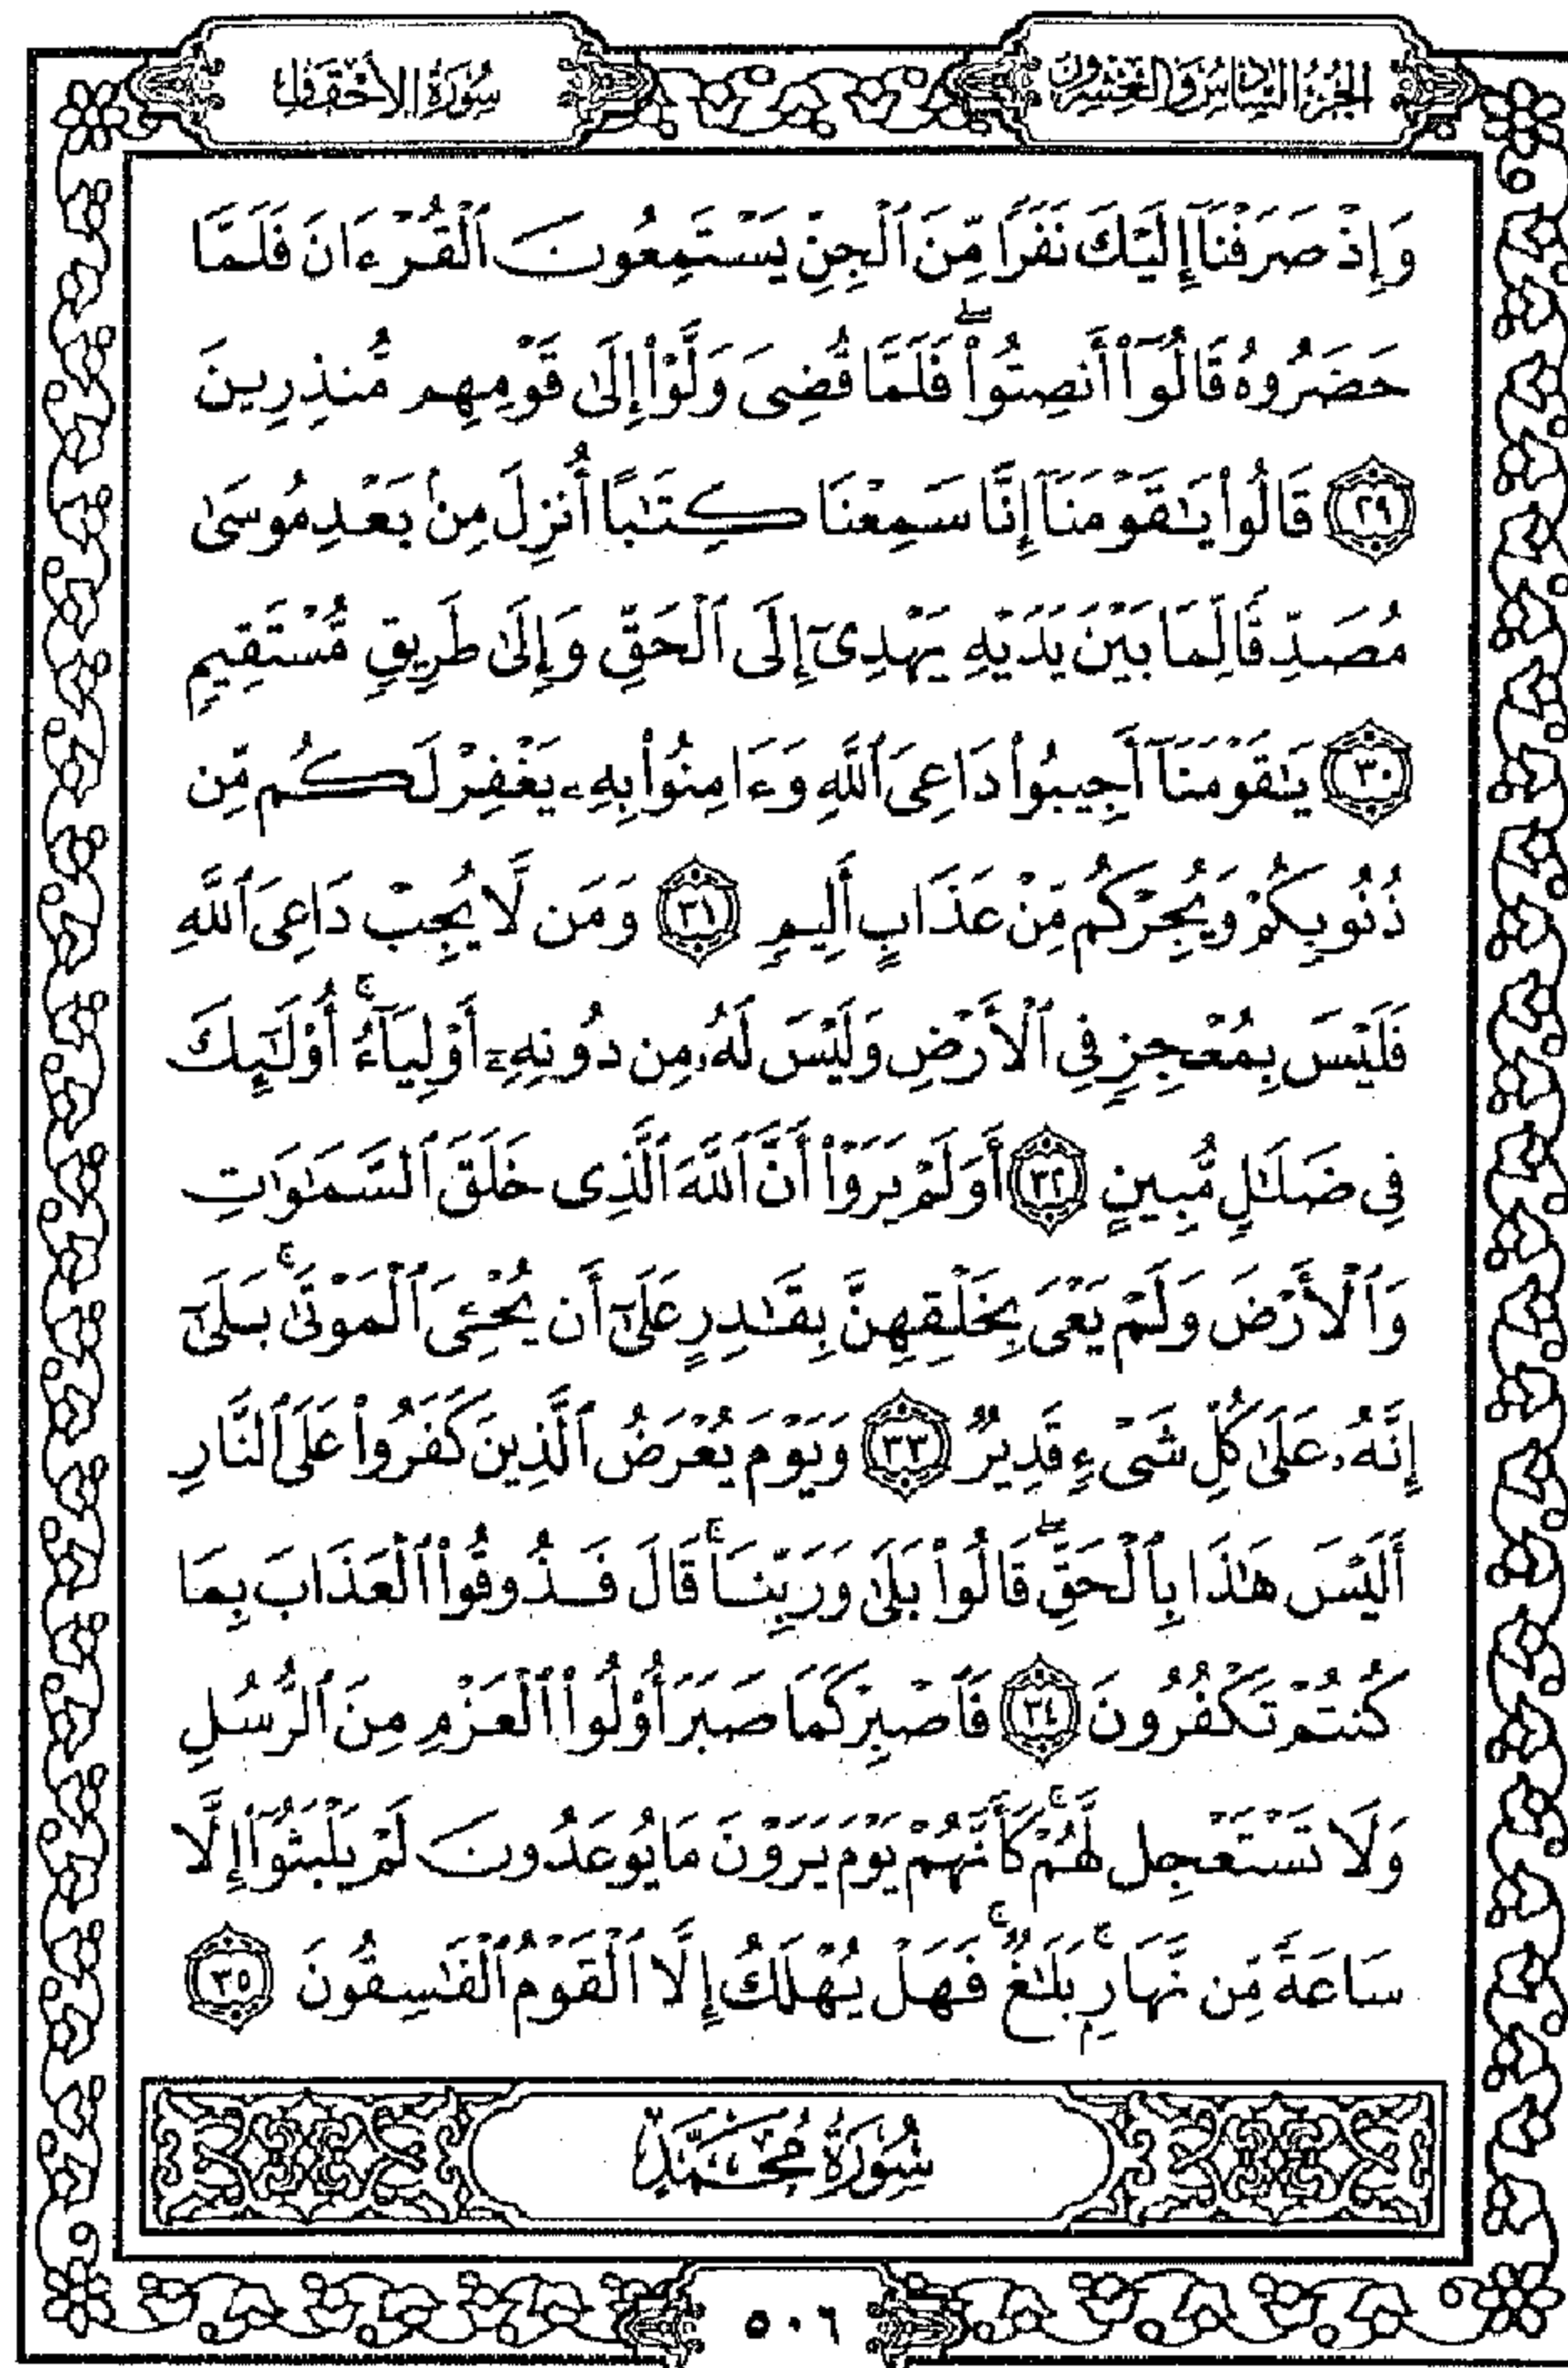 الجزء السادس والعشرون
سورة الأحقاف
وَإِذْ صَرَفْنَآ إِلَيْكَ نَفَرًا مِّنَ ٱلْجِنِّ يَسْتَمِعُونَ ٱلْقُرْءَانَ فَلَمَّا
حَضَرُوهُ قَالُوٓا۟ أَنصِتُوا۟ ۖ فَلَمَّا قُضِىَ وَلَّوْا۟ إِلَىٰ قَوْمِهِم مُّنذِرِينَ
٢٩ قَالُوا۟ يَـٰقَوْمَنَآ إِنَّا سَمِعْنَا كِتَـٰبًا أُنزِلَ مِنۢ بَعْدِ مُوسَىٰ
مُصَدِّقًا لِّمَا بَيْنَ يَدَيْهِ يَهْدِىٓ إِلَى ٱلْحَقِّ وَإِلَىٰ طَرِيقٍ مُّسْتَقِيمٍ
٣٠ يَـٰقَوْمَنَآ أَجِيبُوا۟ دَاعِىَ ٱللَّهِ وَءَامِنُوا۟ بِهِۦ يَغْفِرْ لَكُم مِّن
ذُنُوبِكُمْ وَيُجِرْكُم مِّنْ عَذَابٍ أَلِيمٍ ٣١ وَمَن لَّا يُجِبْ دَاعِىَ ٱللَّهِ
فَلَيْسَ بِمُعْجِزٍ فِى ٱلْأَرْضِ وَلَيْسَ لَهُۥ مِن دُونِهِۦٓ أَوْلِيَآءُ ۚ أُو۟لَـٰٓئِكَ
فِى ضَلَـٰلٍ مُّبِينٍ ٣٢ أَوَلَمْ يَرَوْا۟ أَنَّ ٱللَّهَ ٱلَّذِى خَلَقَ ٱلسَّمَـٰوَٰتِ
وَٱلْأَرْضَ وَلَمْ يَعْىَ بِخَلْقِهِنَّ بِقَـٰدِرٍ عَلَىٰٓ أَن يُحْـِۧىَ ٱلْمَوْتَىٰ ۚ بَلَىٰٓ
إِنَّهُۥ عَلَىٰ كُلِّ شَىْءٍ قَدِيرٌ ٣٣ وَيَوْمَ يُعْرَضُ ٱلَّذِينَ كَفَرُوا۟ عَلَى ٱلنَّارِ
أَلَيْسَ هَـٰذَا بِٱلْحَقِّ ۖ قَالُوا۟ بَلَىٰ وَرَبِّنَا ۚ قَالَ فَذُوقُوا۟ ٱلْعَذَابَ بِمَا
كُنتُمْ تَكْفُرُونَ ٣٤ فَٱصْبِرْ كَمَا صَبَرَ أُو۟لُوا۟ ٱلْعَزْمِ مِنَ ٱلرُّسُلِ
وَلَا تَسْتَعْجِل لَّهُمْ ۚ كَأَنَّهُمْ يَوْمَ يَرَوْنَ مَا يُوعَدُونَ لَمْ يَلْبَثُوٓا۟ إِلَّا
سَاعَةً مِّن نَّهَارٍۭ ۚ بَلَـٰغٌ ۚ فَهَلْ يُهْلَكُ إِلَّا ٱلْقَوْمُ ٱلْفَـٰسِقُونَ ٣٥
سُورَةُ مُحَمَّدٍ
٥٠٦